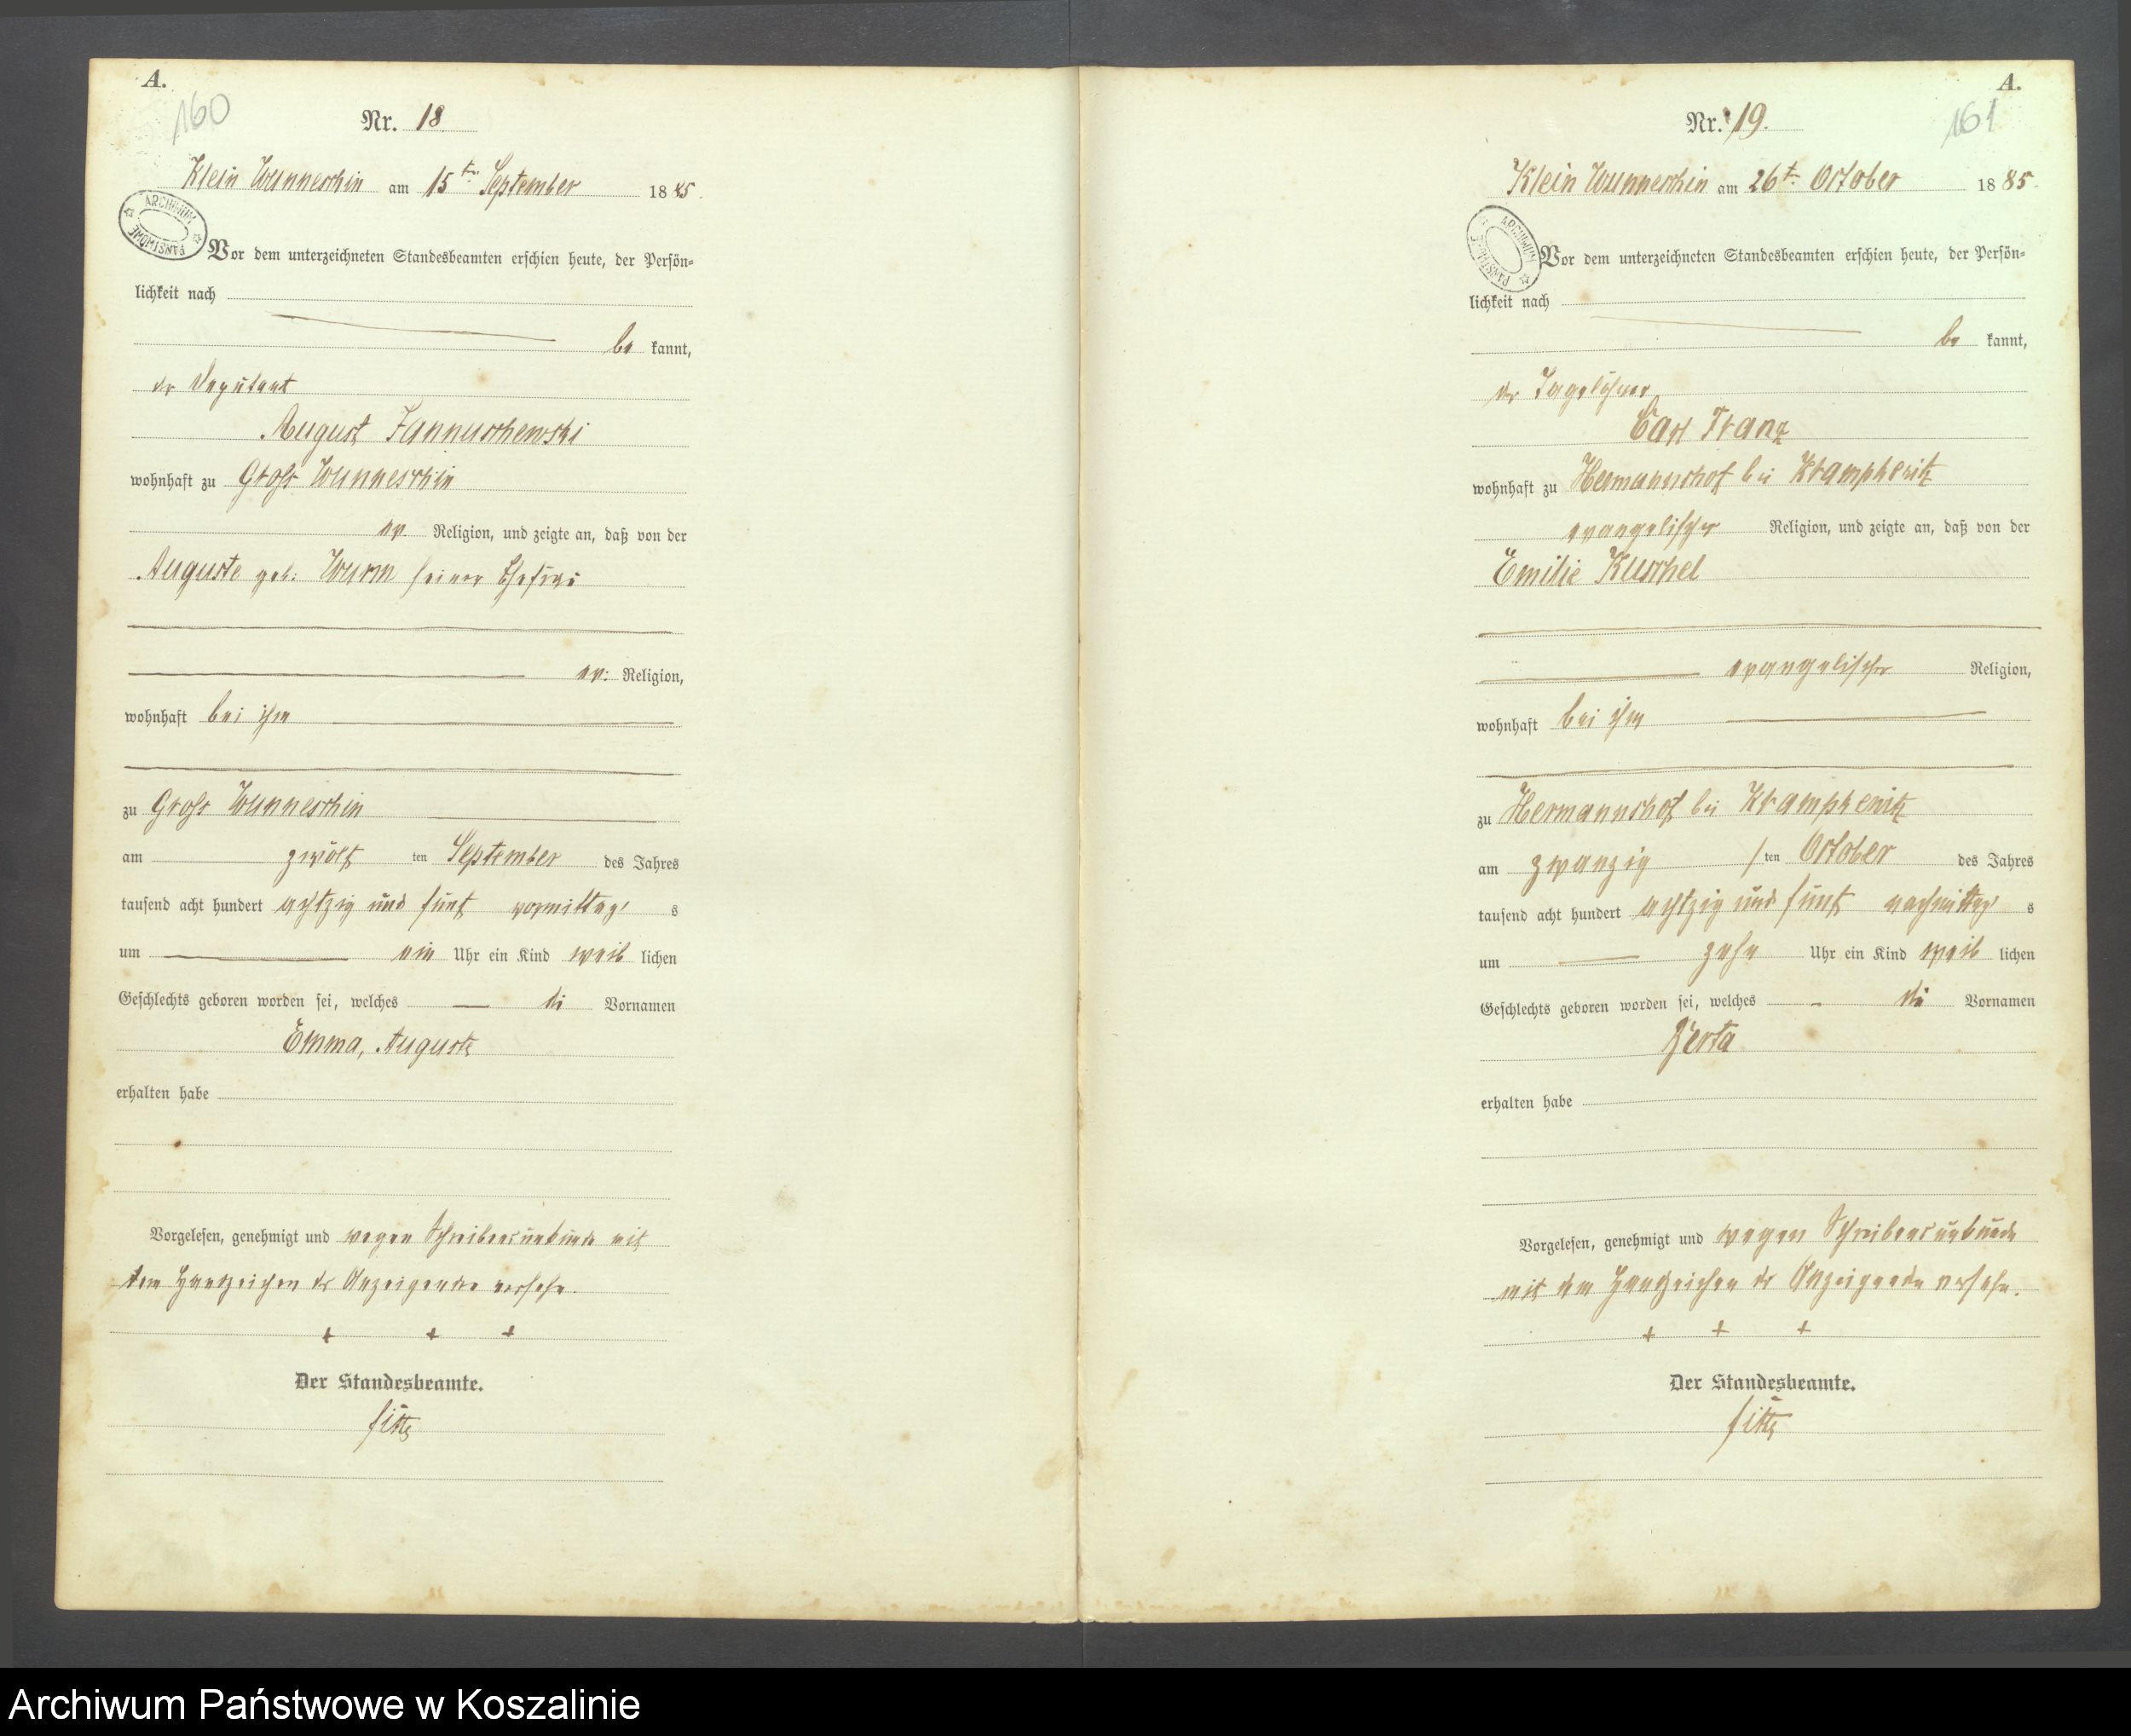 A.
160
Nr. 18.
Klein Wunneschin am 15ten September 1885.
ARCHIWUM PAŃSTWOWE
Vor dem unterzeichneten Standesbeamten erschien heute, der Persön-
lichkeit nach
be kannt,
der Deputant
August Jannuschewski
wohnhaft zu Groß Wunneschin
ev. Religion, und zeigte an, daß von der
Auguste geb: Wurm seiner Ehefrau
ev: Religion,
wohnhaft bei ihm
zu Groß Wunneschin
am zwölf ten September des Jahres
tausend acht hundert achtzig und fünf vormittag s
um ein Uhr ein Kind weib lichen
Geschlechts geboren worden sei, welches die Vornamen
Emma, Auguste
erhalten habe
Vorgelesen, genehmigt und wegen Schreibensunkunde mit
dem Handzeichen des Anzeigenden versehen.
+ + +
Der Standesbeamte.
A.
161
Nr. 19.
Klein Wunneschin am 26t. October 1885.
ARCHIWUM PAŃSTWOWE
Vor dem unterzeichneten Standesbeamten erschien heute, der Persön-
lichkeit nach
be kannt,
der Tagelöhner
Carl Franz
wohnhaft zu Hermannshof bei Krampkewitz
evangelischer Religion, und zeigte an, daß von der
Emilie Kuschel
evangelischer Religion,
wohnhaft bei ihm
zu Hermannshof bei Krampkewitz
am zwanzig / ten October des Jahres
tausend acht hundert achtzig und fünf nachmittag s
um zehn Uhr ein Kind weib lichen
Geschlechts geboren worden sei, welches die Vornamen
Berta
erhalten habe
Vorgelesen, genehmigt und wegen Schreibensunkunde
mit dem Handzeichen des Anzeigenden versehen.
+ + +
Der Standesbeamte.
Archiwum Państwowe w Koszalinie